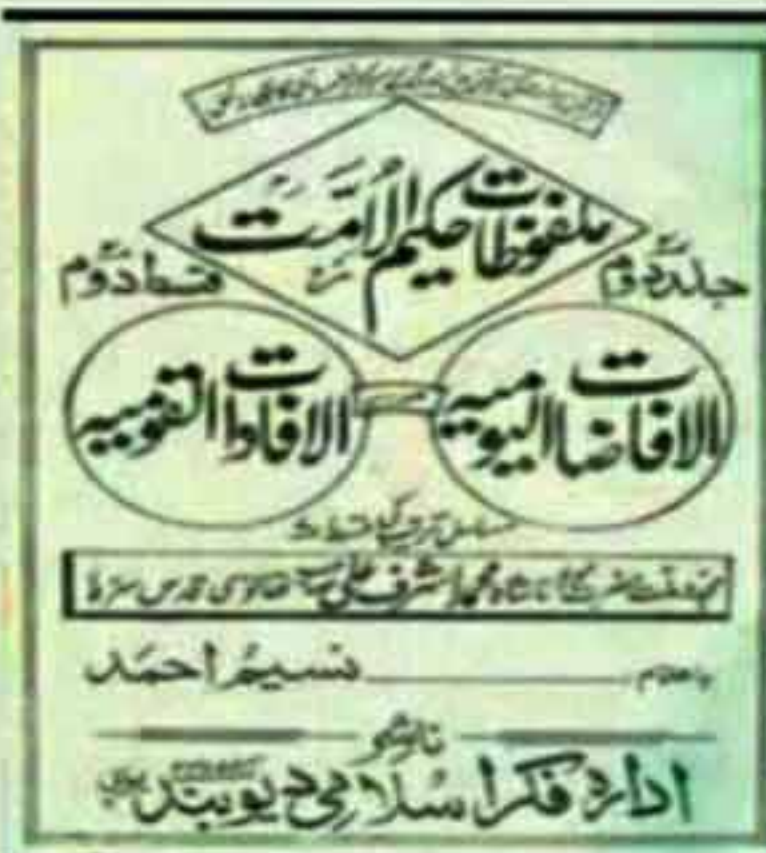 ملفوظات حکیم الامت
جلد دوم قسط دوم
الافاضات الیومیہ الافادات القومیہ
مجدد ملت حضرت مولانا شاہ محمد اشرف علی صاحب تھانوی قدس سرہ
باہتمام نسیم احمد
ناشر
ادارہ فکر اسلامی دیوبند